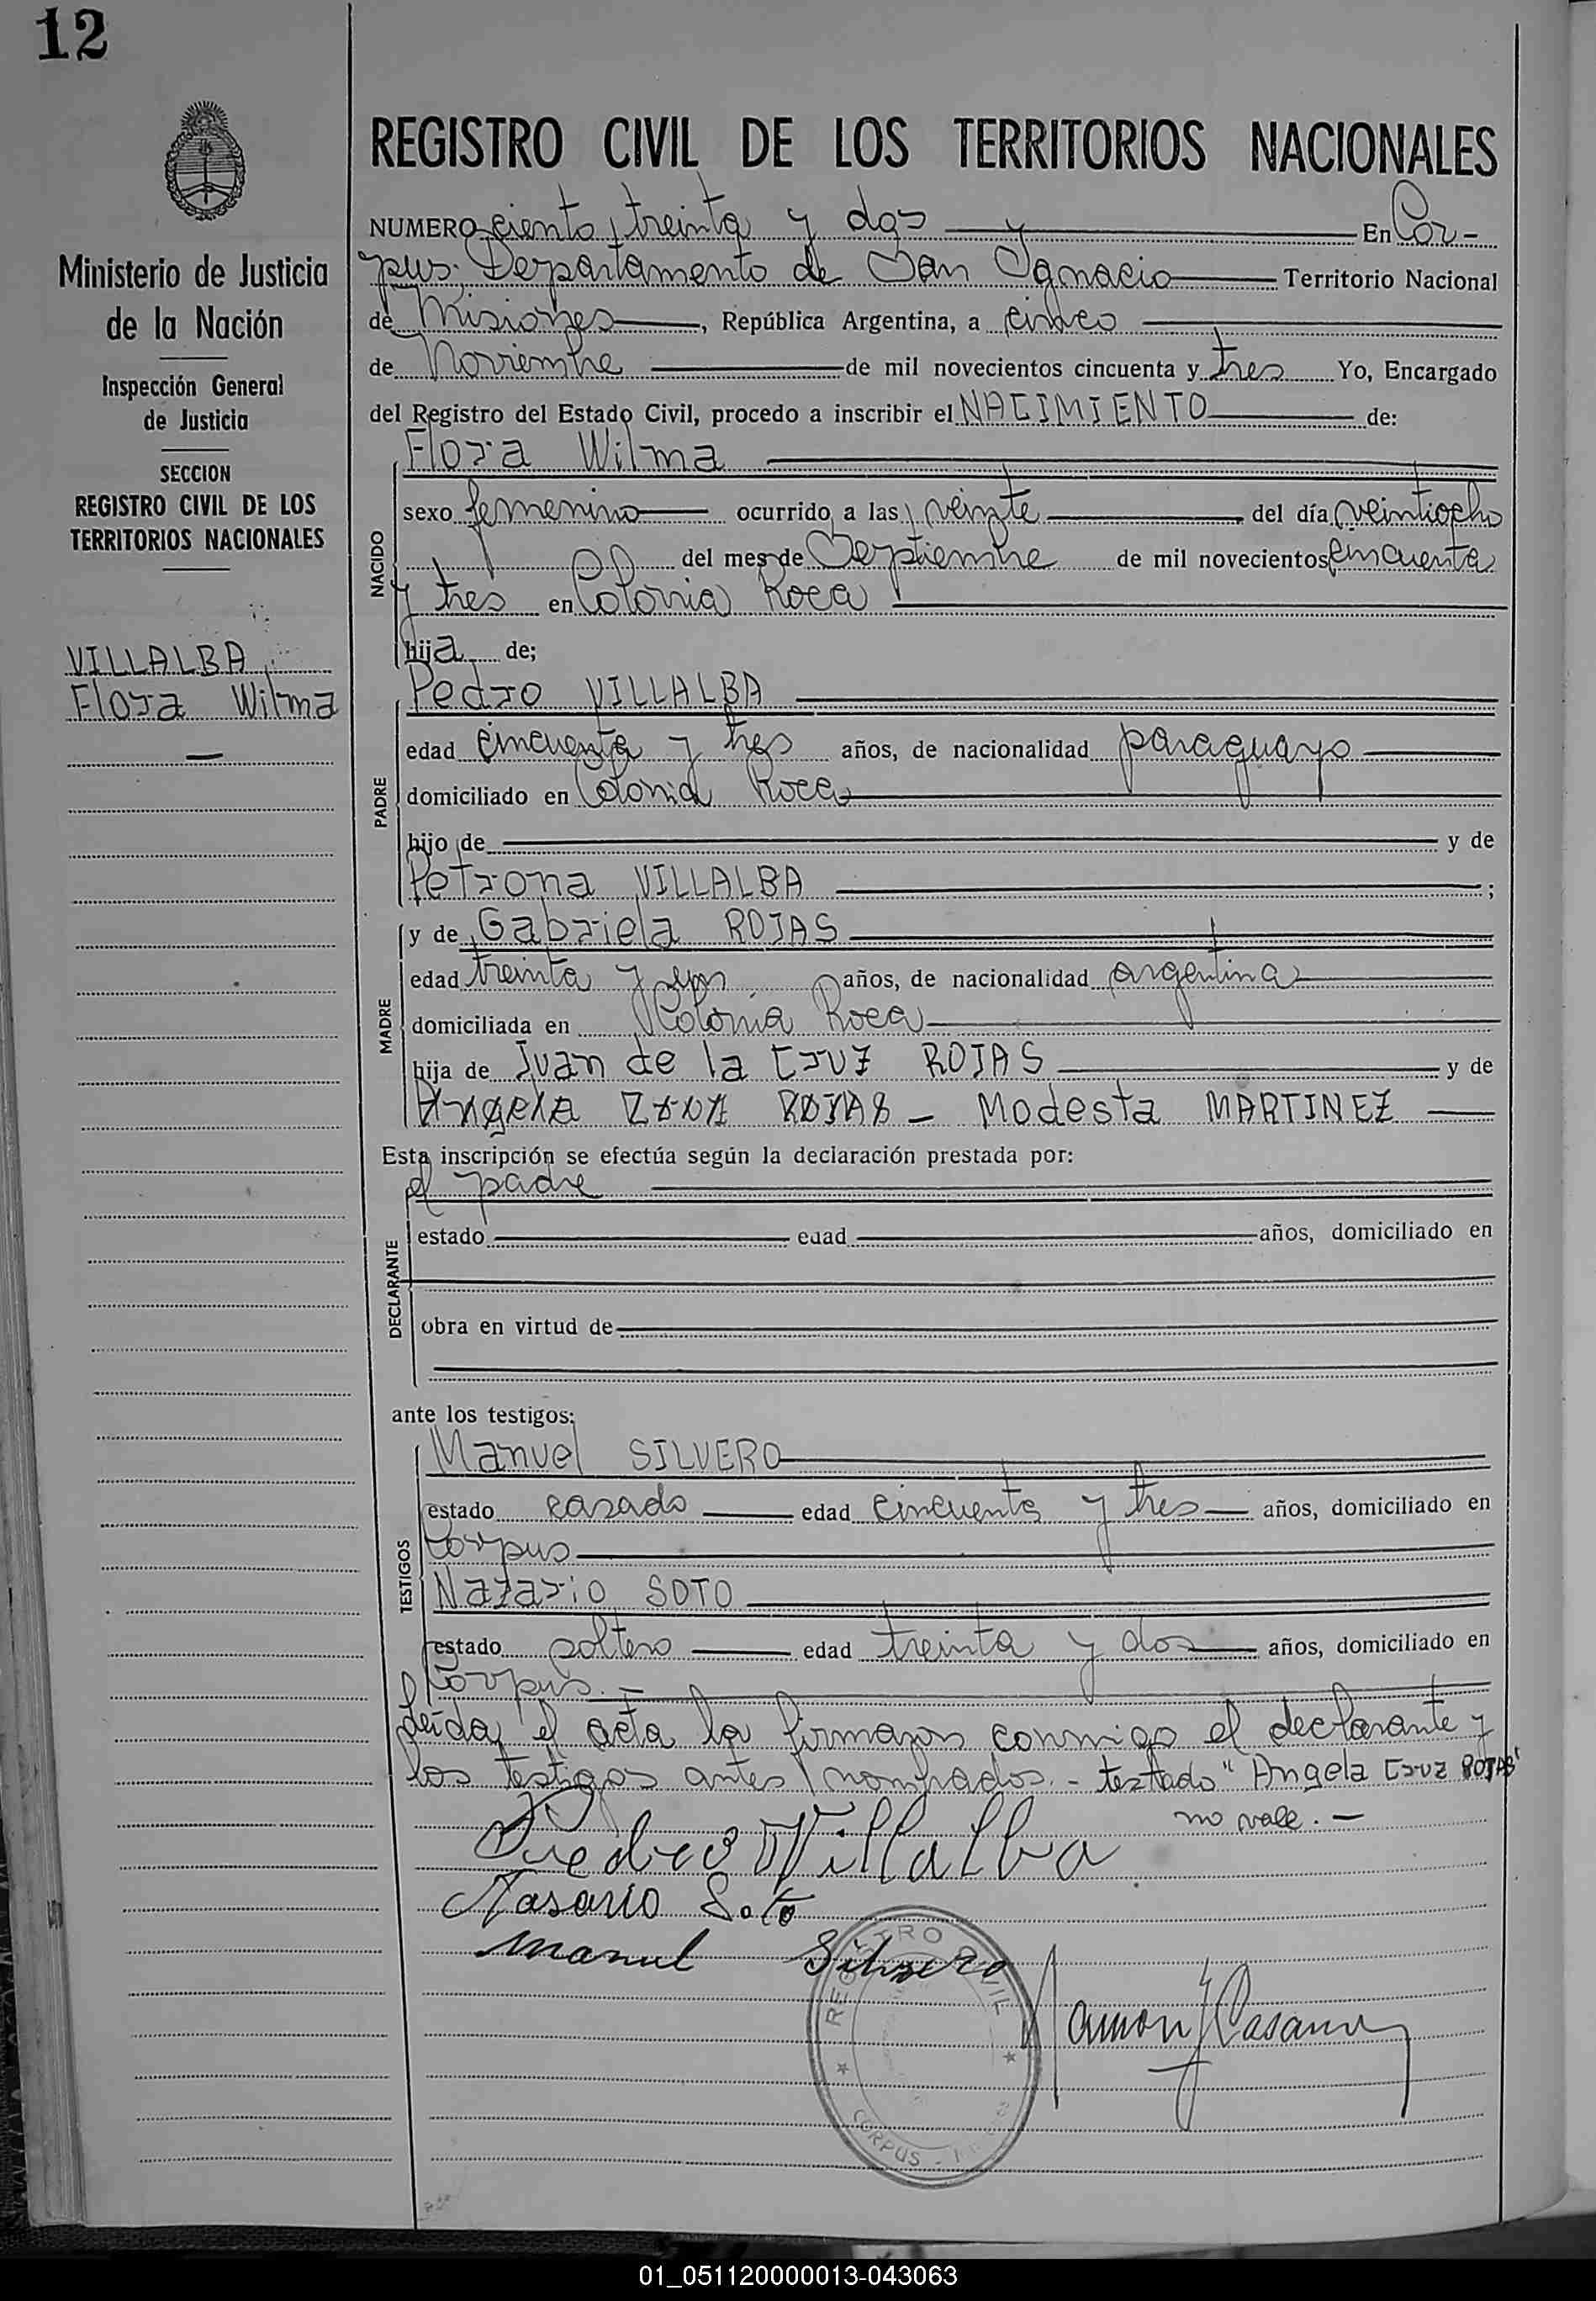 12
REGISTRO CIVIL DE LOS TERRITORIOS NACIONALES
Ministerio de Justicia
de la Nación
Inspección General
de Justicia
SECCION
REGISTRO CIVIL DE LOS
TERRITORIOS NACIONALES
VILLALBA
Flora Wilma
NUMERO ciento treinta y dos En Cor-
pus, Departamento de San Ignacio Territorio Nacional
de Misiones, República Argentina, a cinco
de Noviembre de mil novecientos cincuenta y tres Yo, Encargado
del Registro del Estado Civil, procedo a inscribir el NACIMIENTO de:
NACIDO
Flora Wilma
sexo femenino ocurrido a las veinte del día veintiocho
del mes de Septiembre de mil novecientos cincuenta
y tres en Colonia Roca
hija de;
PADRE
Pedro VILLALBA
edad cincuenta y tres años, de nacionalidad paraguayo
domiciliado en Colonia Roca
hijo de y de
Petrona VILLALBA ;
MADRE
y de Gabriela ROJAS
edad treinta y años, de nacionalidad argentina
domiciliada en Colonia Roca
hija de Juan de la Cruz ROJAS y de
Angela Cruz ROJAS - Modesta MARTINEZ
Esta inscripción se efectúa según la declaración prestada por:
DECLARANTE
el padre
estado edad años, domiciliado en
obra en virtud de
ante los testigos:
TESTIGOS
Manuel SILVERO
estado casado edad cincuenta y tres años, domiciliado en
Corpus
Nazario SOTO
estado soltero edad treinta y dos años, domiciliado en
Corpus.-
Leída el acta la firmaron conmigo el declarante y
los testigos antes nombrados.- testado "Angela Cruz ROJAS"
no vale.-
Pedro Villalba
Nasario Soto
Manuel Silvero
Ramon J Casan
REGISTRO CIVIL
CORPUS -
01_051120000013-043063